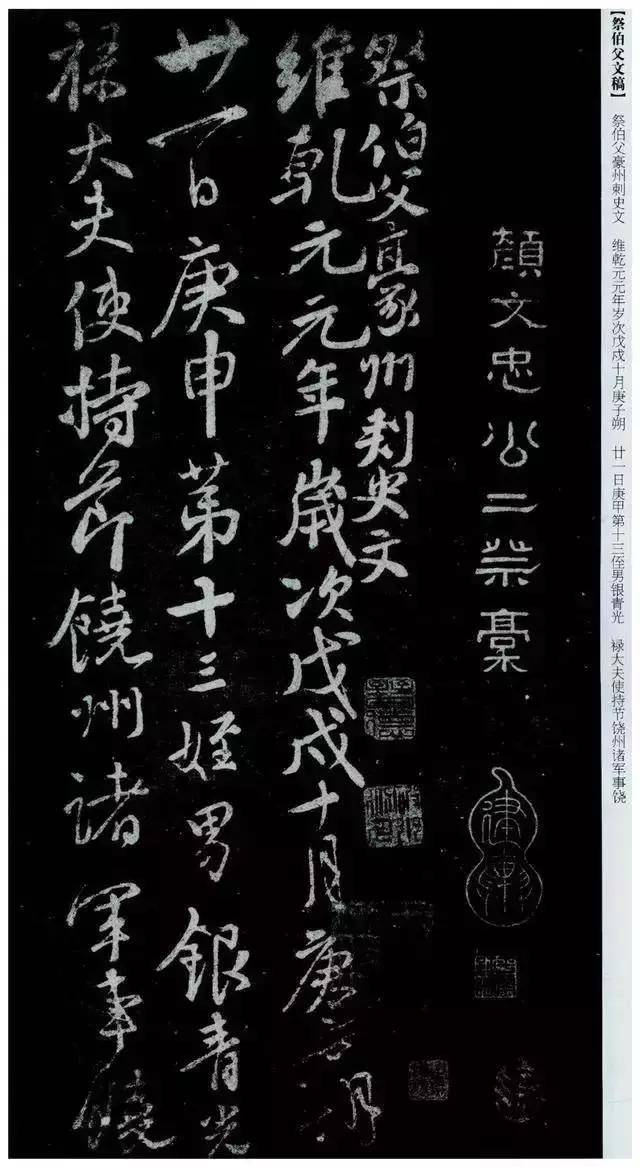 【祭伯父文稿】 祭伯父豪州刺史文 维乾元元年岁次戊戍十月庚子朔 廿一日庚甲第十三侄男银青光 禄大夫使持节饶州诸军事饶
顏文忠公二祭稾
祭伯父豪州刺史文
維乹元元年歲次戊戌十月庚子朔
廿一日庚申苐十三姪男銀青光
祿大夫使持節饒州諸軍事饒